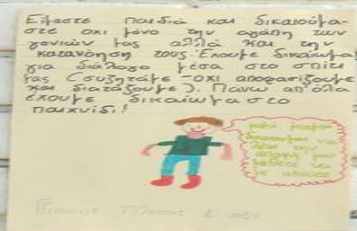 Είμαστε παιδιά και δικαιούμα-
στε όχι μόνο την αγάπη των
γονιών μας αλλά και την
κατανόηση τους. Έχουμε δικαίωμα
για διάλογο μέσα στο σπίτι
μας (συζητάμε - όχι αποφασίζουμε
και διατάζουμε). Πάνω απ' όλα
έχουμε δικαίωμα στο
παιχνίδι!
δικαίωμα να
λέω την
άποψή μου